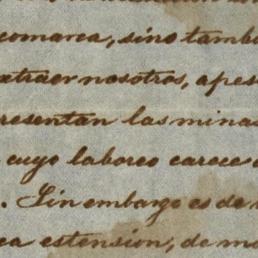 comarca, sino tamb
extraer nosotros, apes
resentan las minas
cuyo laboreo carece
. Sin embargo es de
ca estension, de m